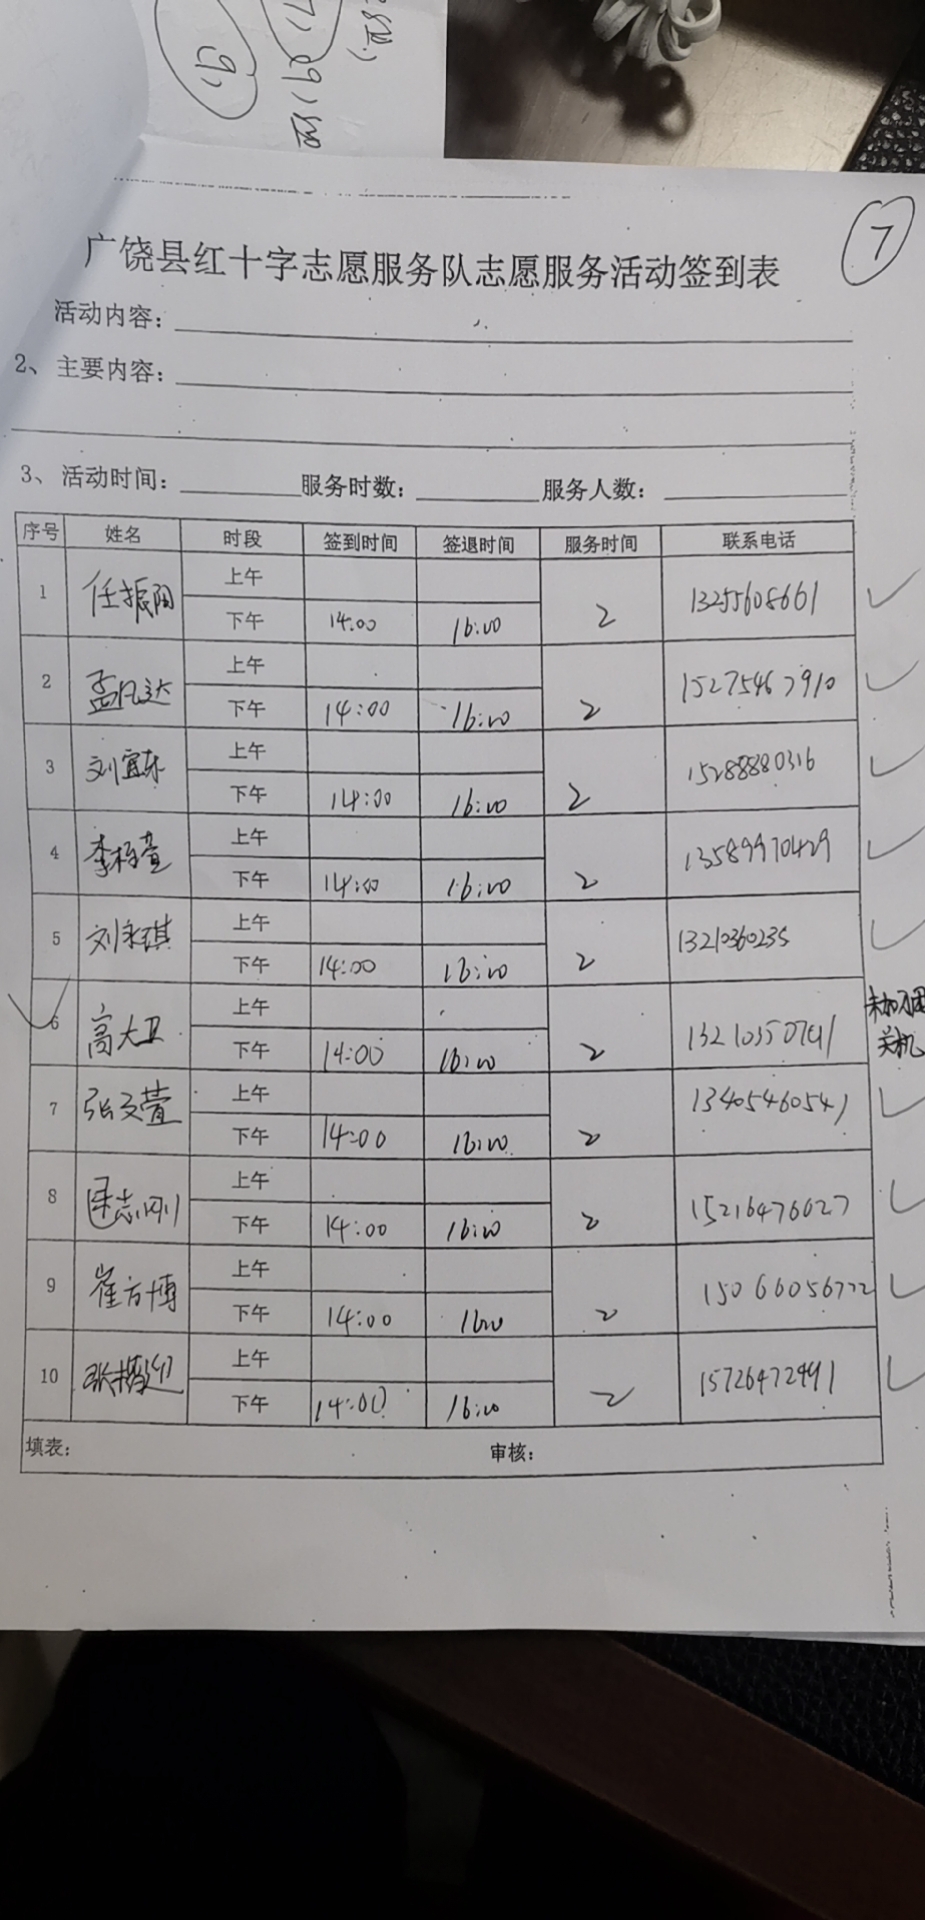 7
广饶县红十字志愿服务队志愿服务活动签到表
活动内容：
2、主要内容：
3、活动时间： 服务时数： 服务人数：
序号 姓名 时段 签到时间 签退时间 服务时间 联系电话
1 任振阳 上午 13255608661
下午 14:00 16:00 2
2 孟凡达 上午 15275467910
下午 14:00 16:00 2
3 刘宜东 上午 15288880316
下午 14:00 16:00 2
4 李柏萱 上午 13589970429
下午 14:00 16:00 2
5 刘永琪 上午 1321036023
下午 14:00 16:00 2
6 高大卫 上午
下午 14:00 16:00 2 关机
7 张文萱 上午 13405460541
下午 14:00 16:00 2
8 志刚 上午 15216476627
下午 14:00 16:00 2
9 崔方博 上午 15066056772
下午 14:00 1600 2
10 张 上午 15726472491
下午 14:00 16:00 2
填表： 审核：